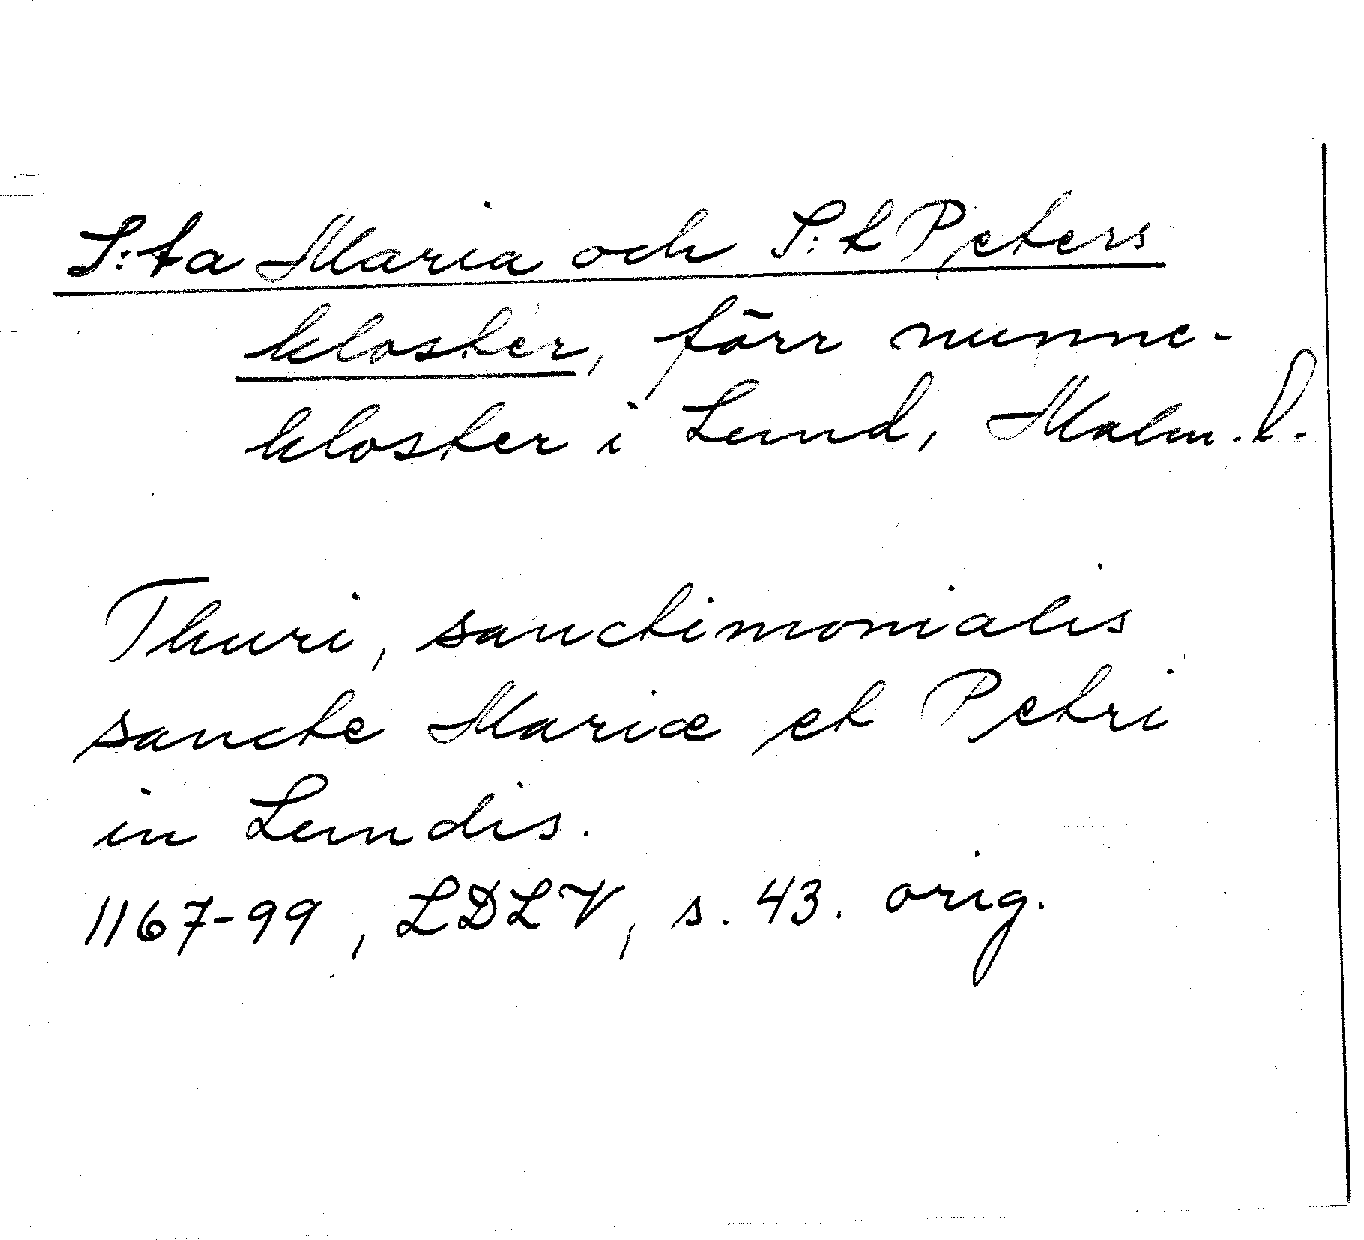 S:ta Maria och S:t Peters
kloster, förr nunne-
kloster i Lund, Malm. l.
Thuri, sanctimonialis
sancte Mariæ et Petri
in Lundis.
1167-99, LDLV, s. 43. orig.